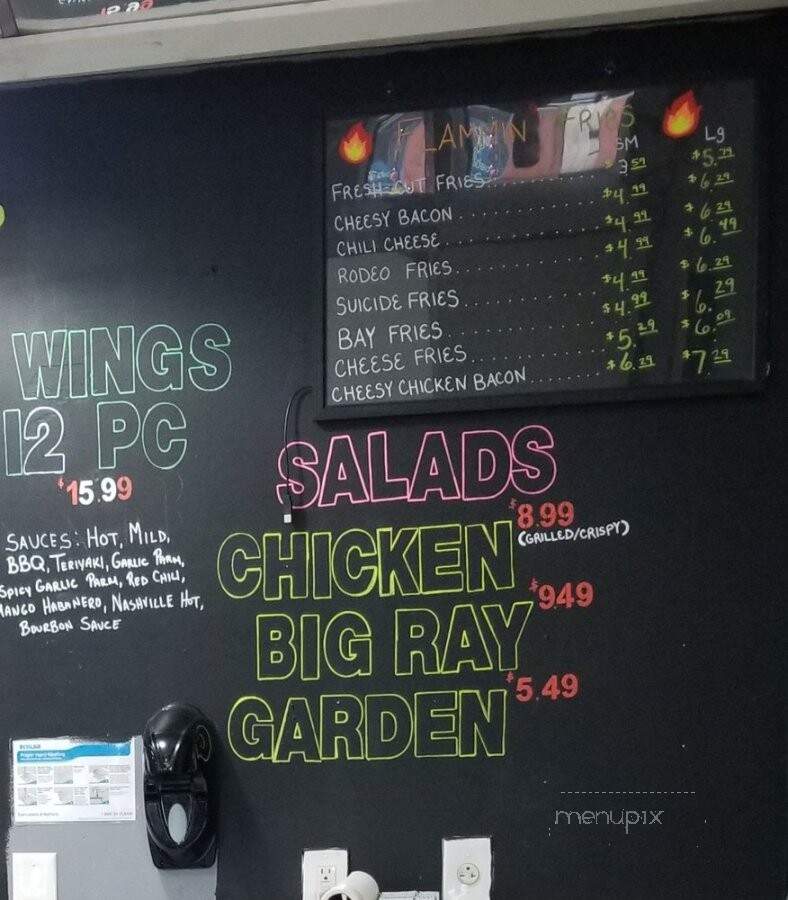 FLAMMIN FRIES
SM Lg
FRESH-CUT FRIES $3.59 $5.79
CHEESY BACON $4.99 $6.29
CHILI CHEESE $4.99 $6.29
RODEO FRIES $4.99 $6.49
SUICIDE FRIES $4.99 $6.29
BAY FRIES $4.99 $6.29
CHEESE FRIES $5.29 $6.09
CHEESY CHICKEN BACON $6.29 $7.29
WINGS
12 PC
$15.99
SAUCES: HOT, MILD,
BBQ, TERIYAKI, GARLIC PARM,
SPICY GARLIC PARM, RED CHILI,
MANGO HABANERO, NASHVILLE HOT,
BOURBON SAUCE
SALADS
$8.99
CHICKEN (GRILLED/CRISPY)
$949
BIG RAY
$5.49
GARDEN
ECOLAB
menupix